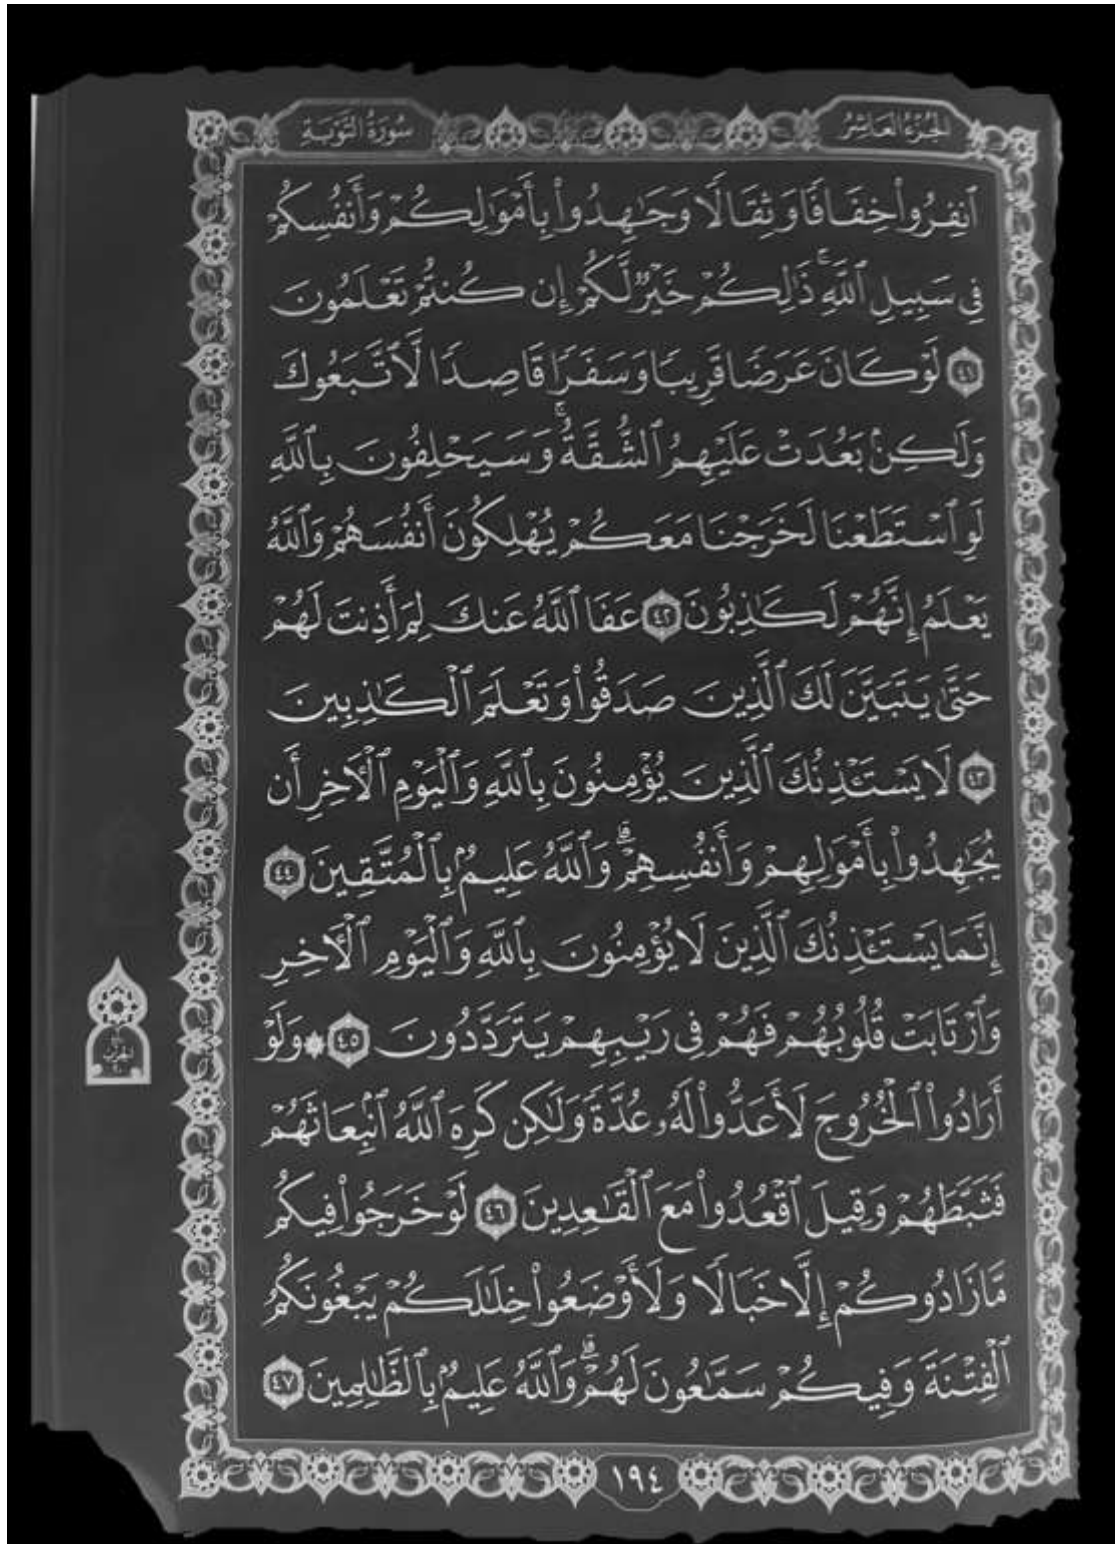 الجُزْءُ العَاشِرُ
سُورَةُ التَّوْبَةِ
ٱنفِرُواْ خِفَافٗا وَثِقَالٗا وَجَٰهِدُواْ بِأَمۡوَٰلِكُمۡ وَأَنفُسِكُمۡ
فِي سَبِيلِ ٱللَّهِۚ ذَٰلِكُمۡ خَيۡرٞ لَّكُمۡ إِن كُنتُمۡ تَعۡلَمُونَ
٤١ لَوۡ كَانَ عَرَضٗا قَرِيبٗا وَسَفَرٗا قَاصِدٗا لَّٱتَّبَعُوكَ
وَلَٰكِنۢ بَعُدَتۡ عَلَيۡهِمُ ٱلشُّقَّةُۚ وَسَيَحۡلِفُونَ بِٱللَّهِ
لَوِ ٱسۡتَطَعۡنَا لَخَرَجۡنَا مَعَكُمۡ يُهۡلِكُونَ أَنفُسَهُمۡ وَٱللَّهُ
يَعۡلَمُ إِنَّهُمۡ لَكَٰذِبُونَ ٤٢ عَفَا ٱللَّهُ عَنكَ لِمَ أَذِنتَ لَهُمۡ
حَتَّىٰ يَتَبَيَّنَ لَكَ ٱلَّذِينَ صَدَقُواْ وَتَعۡلَمَ ٱلۡكَٰذِبِينَ
٤٣ لَا يَسۡتَـٔۡذِنُكَ ٱلَّذِينَ يُؤۡمِنُونَ بِٱللَّهِ وَٱلۡيَوۡمِ ٱلۡأٓخِرِ أَن
يُجَٰهِدُواْ بِأَمۡوَٰلِهِمۡ وَأَنفُسِهِمۡۗ وَٱللَّهُ عَلِيمُۢ بِٱلۡمُتَّقِينَ ٤٤
إِنَّمَا يَسۡتَـٔۡذِنُكَ ٱلَّذِينَ لَا يُؤۡمِنُونَ بِٱللَّهِ وَٱلۡيَوۡمِ ٱلۡأٓخِرِ
وَٱرۡتَابَتۡ قُلُوبُهُمۡ فَهُمۡ فِي رَيۡبِهِمۡ يَتَرَدَّدُونَ ٤٥ ۞ وَلَوۡ
أَرَادُواْ ٱلۡخُرُوجَ لَأَعَدُّواْ لَهُۥ عُدَّةٗ وَلَٰكِن كَرِهَ ٱللَّهُ ٱنۢبِعَاثَهُمۡ
فَثَبَّطَهُمۡ وَقِيلَ ٱقۡعُدُواْ مَعَ ٱلۡقَٰعِدِينَ ٤٦ لَوۡ خَرَجُواْ فِيكُم
مَّا زَادُوكُمۡ إِلَّا خَبَالٗا وَلَأَوۡضَعُواْ خِلَٰلَكُمۡ يَبۡغُونَكُمُ
ٱلۡفِتۡنَةَ وَفِيكُمۡ سَمَّٰعُونَ لَهُمۡۗ وَٱللَّهُ عَلِيمُۢ بِٱلظَّٰلِمِينَ ٤٧
١٩٤